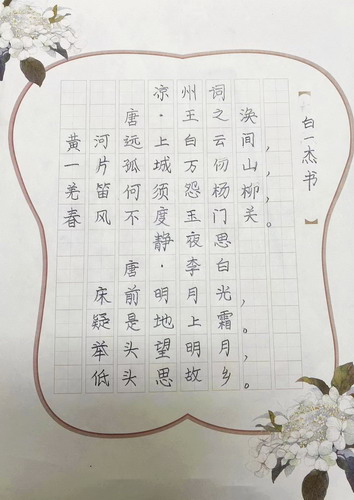 凉州词
唐·王之涣
黄河远上白云间，
一片孤城万仞山。
羌笛何须怨杨柳，
春风不度玉门关。
静夜思
唐·李白
床前明月光，
疑是地上霜。
举头望明月，
低头思故乡。
【白一杰书】